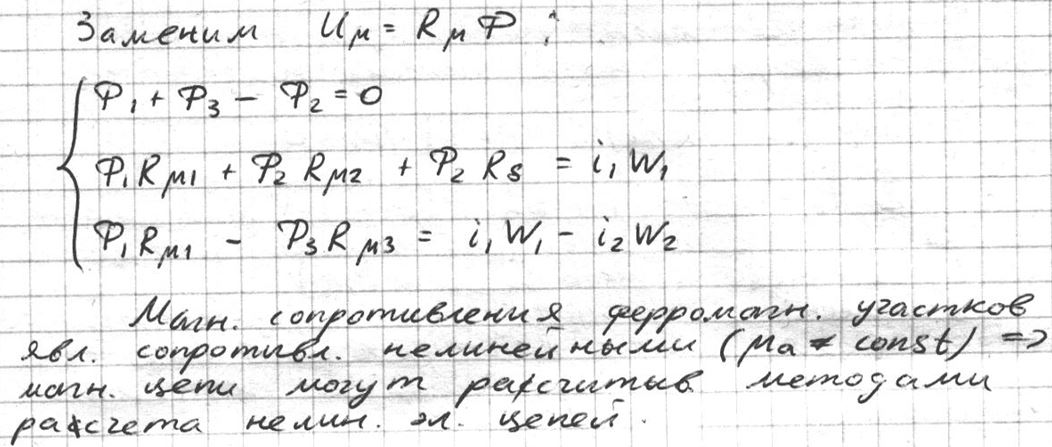 Заменим Uμ = Rμ Ф :
Ф₁ + Ф₃ − Ф₂ = 0
Ф₁ Rμ₁ + Ф₂ Rμ₂ + Ф₂ Rδ = i₁ W₁
Ф₁ Rμ₁ − Ф₃ Rμ₃ = i₁ W₁ − i₂ W₂
Магн. сопротивления ферромагн. участков
явл. сопротивл. нелинейными (μа ≠ const) =>
магн. цепи могут расчитыв. методами
расчета нелин. эл. цепей.